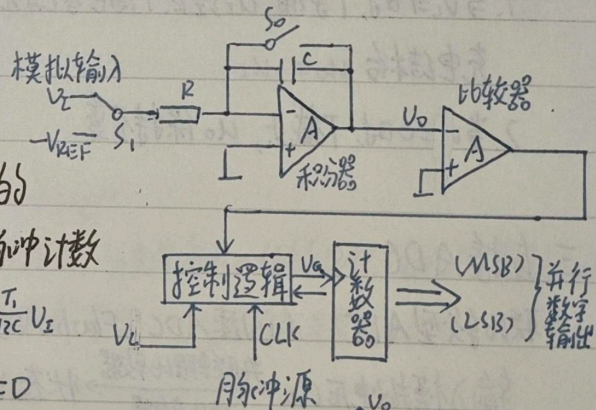 S0
C
模拟输入
R
VI
S1
-VREF
-
+
A
积分器
VO
比较器
-
+
A
的
脉冲计数
T1
RC VI
控制逻辑
VG
计数器
(MSB)
(LSB)
并行数字输出
VL
CLK
脉冲源
=D
VO